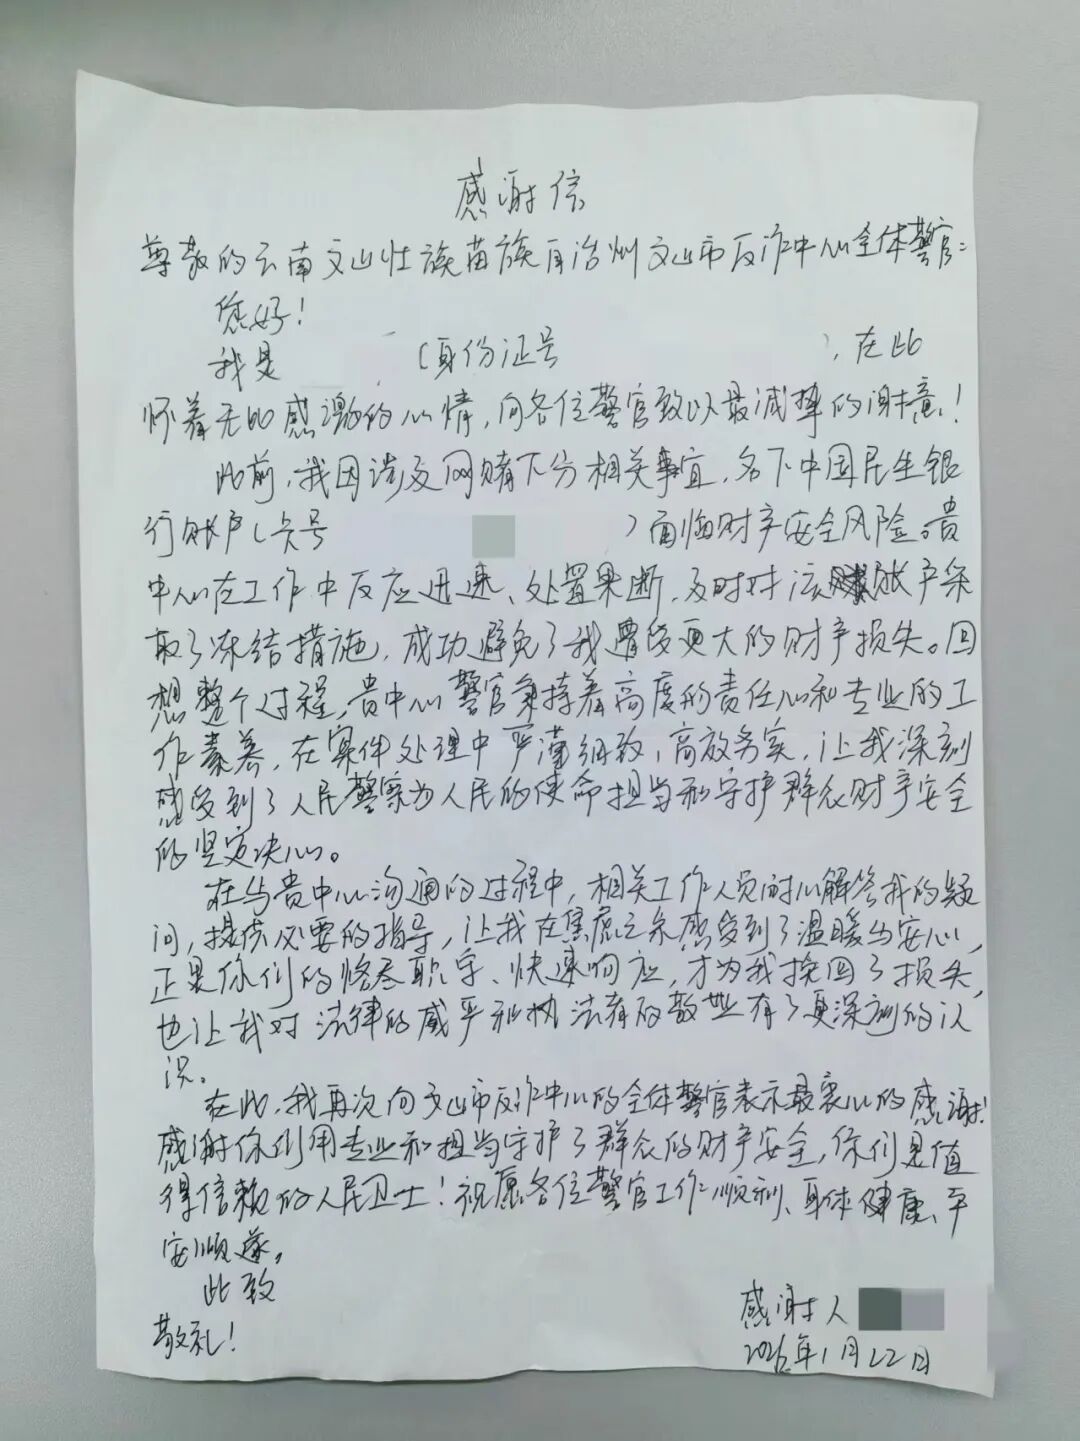 感谢信
尊敬的云南文山壮族苗族自治州文山市反诈中心全体警官:
您好!
我是 (身份证号 ),在此
怀着无比感激的心情,向各位警官致以最诚挚的谢意!
此前,我因涉及网赌下分相关事宜,名下中国民生银
行账户(卡号 )面临财产安全风险。贵
中心在工作中反应迅速、处置果断,及时对该账户采
取了冻结措施,成功避免了我遭受更大的财产损失。回
想整个过程,贵中心警官秉持着高度的责任心和专业的工
作素养,在案件处理中严谨细致,高效务实,让我深刻
感受到了人民警察为人民的使命担当和守护群众财产安全
的坚定决心。
在与贵中心沟通的过程中,相关工作人员耐心解答我的疑
问,提供必要的指导,让我在焦虑之余感受到了温暖与安心,
正是你们的恪尽职守、快速响应,才为我挽回了损失,
也让我对法律的威严和执法者的敬业有了更深刻的认
识。
在此,我再次向文山市反诈中心的全体警官表示最衷心的感谢!
感谢你们用专业和担当守护了群众的财产安全,你们是值
得信赖的人民卫士!祝愿各位警官工作顺利、身体健康、平
安顺遂。
此致
敬礼!
感谢人
2026年1月22日